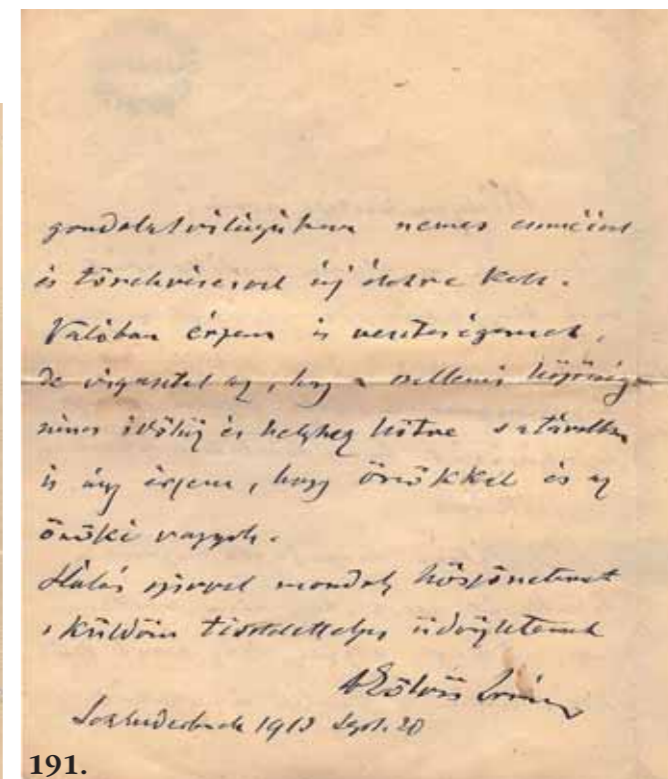 gondolatvilágukban nemes
és törekvéseivel új életre kelt.
Valóban érzem is veszteségemet,
de vigasztal az, hogy a szellemi közösség
nincs időhöz és helyhez kötve s a távolban
is úgy érzem, hogy Önökkel és az
Önöké vagyok.
Hálás szívvel mondok köszönetemet
s küldöm tiszteletteljes üdvözletemet
Eötvös Loránd
1913 Sept. 20
191.